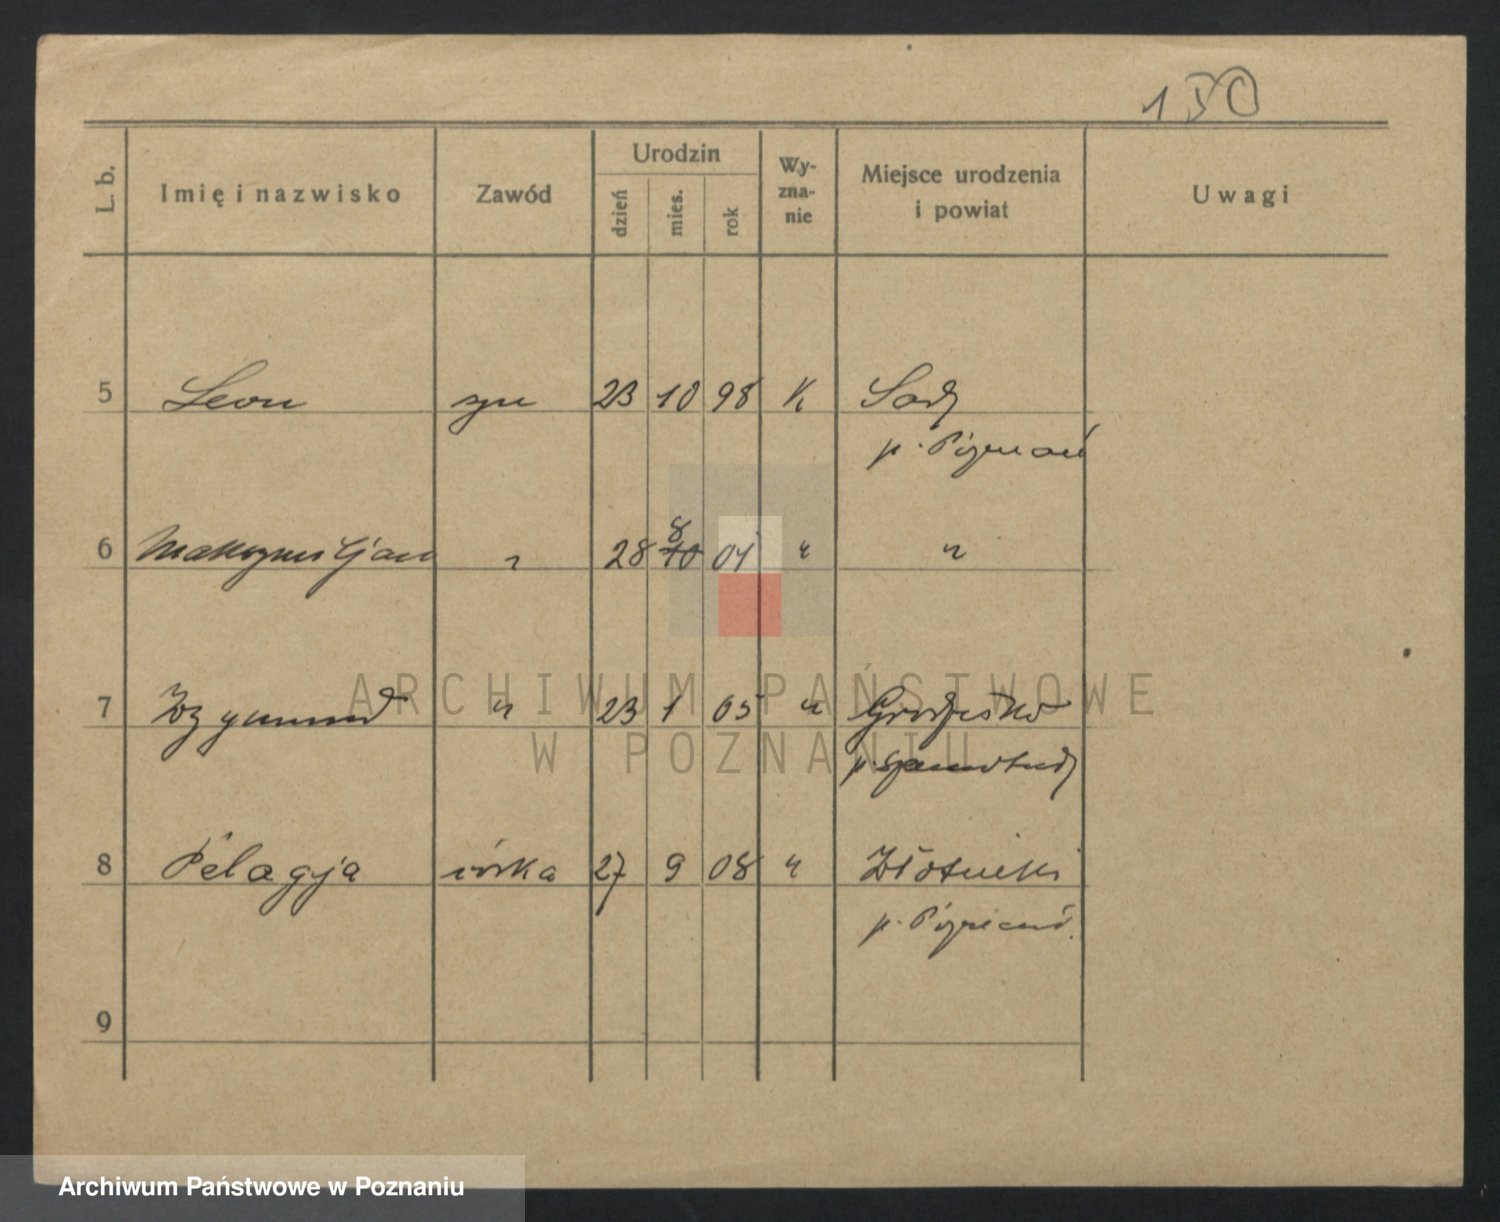 150
L. b. Imię i nazwisko Zawód Urodzin Wy-zna-nie Miejsce urodzenia i powiat Uwagi
dzień mies. rok
5 Leon syn 23 10 98 K Sady
p. Poznań
8
6 Maksymiljan " 28 10 04 " "
7 Zygmund " 23 1 05 " Grodzisko
p. Szamotuły
8 Pelagja córka 27 9 08 " Złotniki
p. Poznań.
9
ARCHIWUM PAŃSTWOWE
W POZNANIU
Archiwum Państwowe w Poznaniu